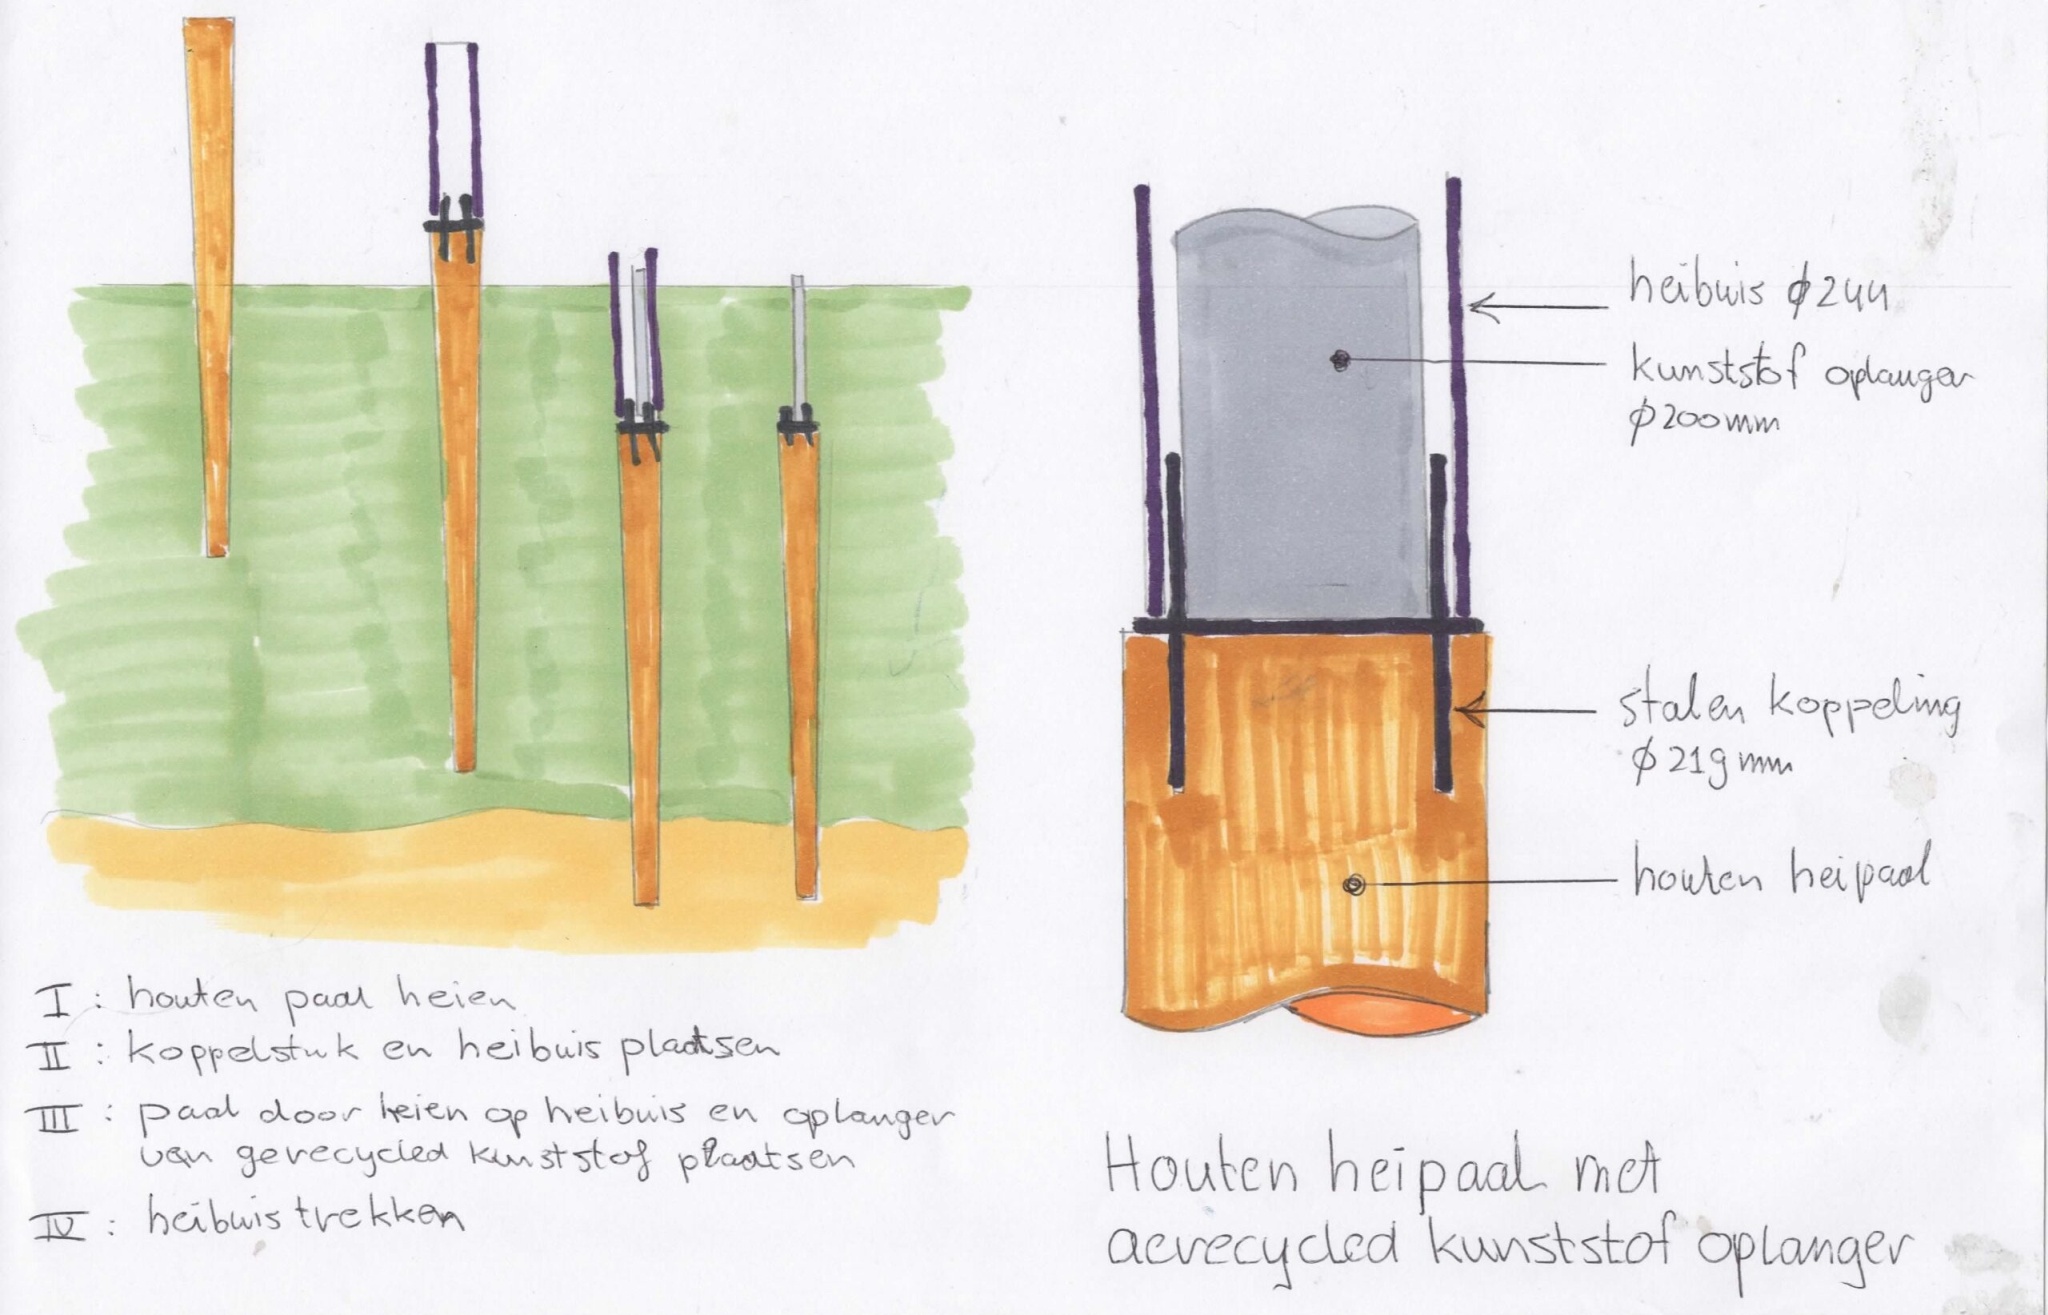 heibuis ϕ244
kunststof oplanger
ϕ200mm
stalen koppeling
ϕ219mm
houten heipaal
I : houten paal heien
II : koppelstuk en heibuis plaatsen
III : paal door heien op heibuis en oplanger
van gerecycled kunststof plaatsen
IV : heibuis trekken
Houten heipaal met
gerecycled kunststof oplanger